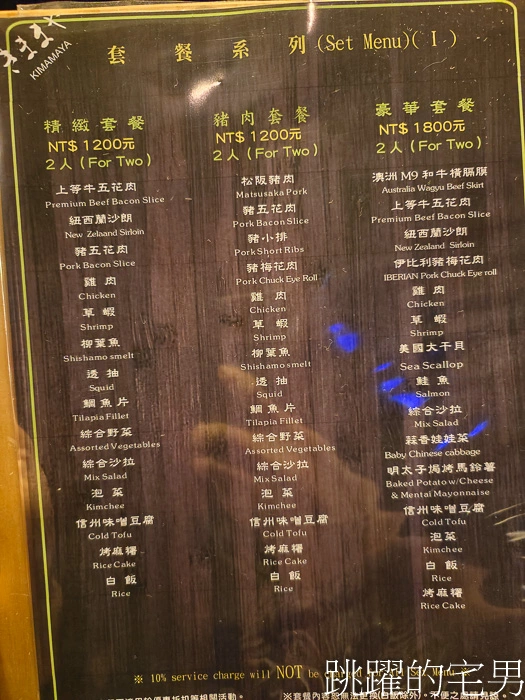 きままや
KIMAMAYA
套餐系列(Set Menu)(I)
精緻套餐
NT$ 1200元
2人(For Two)
上等牛五花肉
Premium Beef Bacon Slice
紐西蘭沙朗
New Zelaand Sirloin
豬五花肉
Pork Bacon Slice
雞肉
Chicken
草蝦
Shrimp
柳葉魚
Shishamo smelt
透抽
Squid
鯛魚片
Tilapia Fillet
綜合野菜
Assorted Vegetables
綜合沙拉
Mix Salad
泡菜
Kimchee
信州味噌豆腐
Cold Tofu
烤麻糬
Rice Cake
白飯
Rice
豬肉套餐
NT$ 1200元
2人(For Two)
松阪豬肉
Matsusaka Pork
豬五花肉
Pork Bacon Slice
豬小排
Pork Short Ribs
豬梅花肉
Pork Chuck Eye Roll
雞肉
Chicken
草蝦
Shrimp
柳葉魚
Shishamo smelt
透抽
Squid
鯛魚片
Tilapia Fillet
綜合野菜
Assorted Vegetables
綜合沙拉
Mix Salad
泡菜
Kimchee
信州味噌豆腐
Cold Tofu
烤麻糬
Rice Cake
白飯
Rice
豪華套餐
NT$ 1800元
2人(For Two)
澳洲M9和牛橫膈膜
Australia Wagyu Beef Skirt
上等牛五花肉
Premium Beef Bacon Slice
紐西蘭沙朗
New Zealand Sirloin
伊比利豬梅花肉
IBERIAN Pork Chuck Eye roll
雞肉
Chicken
草蝦
Shrimp
美國大干貝
Sea Scallop
鮭魚
Salmon
綜合沙拉
Mix Salad
蒜香娃娃菜
Baby Chinese cabbage
明太子焗烤馬鈴薯
Baked Potato w/Cheese
& Mental Mayonnaise
信州味噌豆腐
Cold Tofu
泡菜
Kimchee
白飯
Rice
烤麻糬
Rice Cake
※ 10% service charge will NOT be
跳躍的宅男